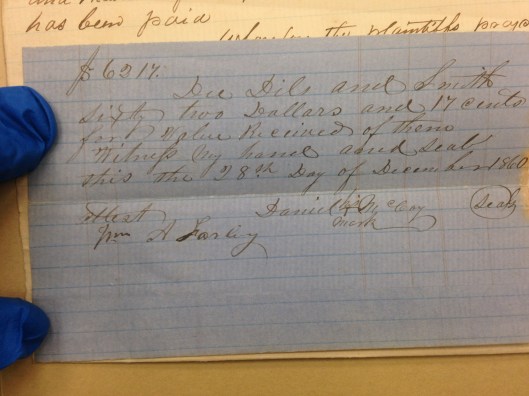 has been paid
the plaintiffs pray
$62.17.
Due Dils and Smith
sixty two Dollars and 17 cents
for Value Received of them
Witness my hand and seal
this the 28th Day of December 1860
Attest Daniel his X mark McCoy Seal
Wm A Farley